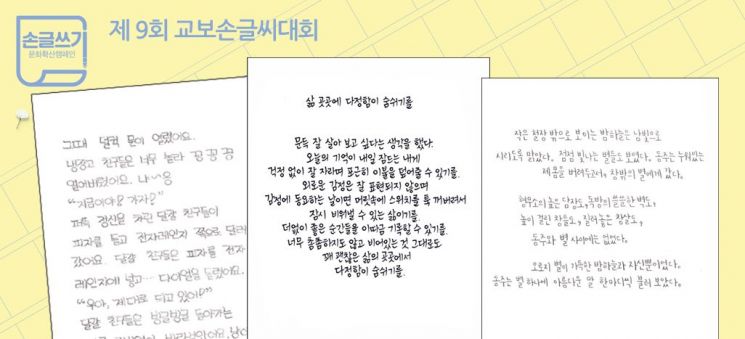 손글쓰기
문화확산캠페인
제 9회 교보손글씨대회
그때 덜컥 문이 열렸어요.
냉장고 친구들은 너무 놀라 꽁꽁꽁
얼어버렸어요.
"지금이야! 가자?"
퍼뜩 정신을 차린 달걀 친구들이
피자를 들고 전자레인지 쪽으로 달려
갔어요. 달걀 친구들은 피자를 전자
레인지에 넣고… 다이얼을 돌렸어요.
"우와, 제대로 되고 있어?"
달걀 친구들은 빙글빙글 돌아가는
삶 곳곳에 다정함이 숨쉬기를
문득 잘 살아 보고 싶다는 생각을 했다.
오늘의 기억이 내일 잠드는 내게
걱정 없이 잘 자라며 포근히 이불을 덮어줄 수 있기를.
외로운 감정은 잘 표현되지 않으며
감정에 동요하는 날이면 머릿속에 스위치를 툭 꺼버려서
잠시 비워낼 수 있는 삶이기를.
더없이 좋은 순간들을 이따금 기록할 수 있기를.
너무 촘촘하지도 않고 비어있는 것 그대로도
꽤 괜찮은 삶의 곳곳에서
다정함이 숨쉬기를.
작은 철창 밖으로 보이는 밤하늘은 남빛으로
시리도록 맑았다. 점점 빛나는 별들도 보였다. 동주는 누워있는
제 몸을 버려두고서, 창밖의 별에게 갔다.
형무소의 높은 담장도, 독방의 쓸쓸한 벽도,
높이 걸린 창틀도, 질러놓은 창살도,
동주와 별 사이에는 없었다.
오로지 별이 가득한 밤하늘과 자신뿐이었다.
동주는 별 하나에 아름다운 말 한마디씩 불러 보았다.